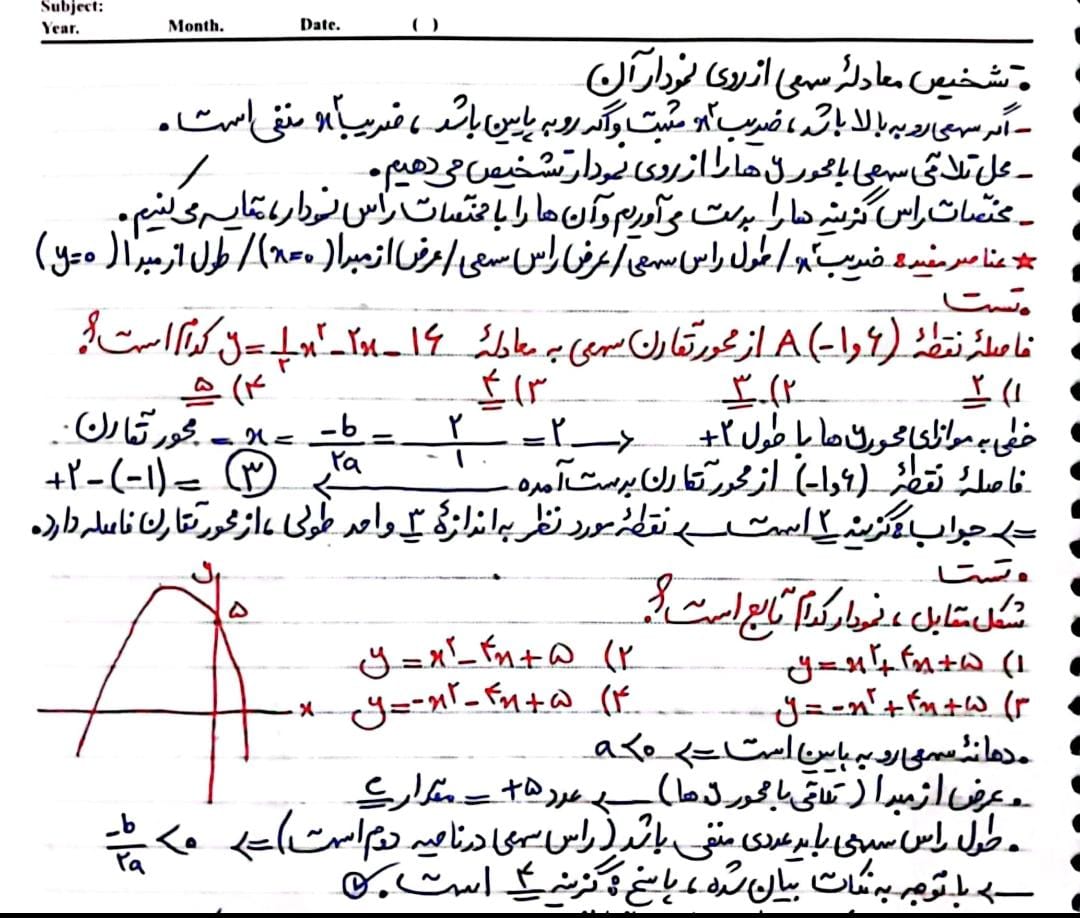 Subject:
Year. Month. Date. ( )
• تشخیص معادلهٔ سهمی از روی نمودار آن
- اگر سهمی رو به بالا باشد، ضریب x² مثبت و اگر رو به پایین باشد، ضریب x² منفی است.
- محل تلاقی سهمی با محور y ها را از روی نمودار تشخیص می دهیم.
- مختصات راس گزینه ها را بدست می آوریم و آن ها را با مختصات راس نمودار، مقایسه می کنیم.
★ عناصر مفید: ضریب x² / طول راس سهمی / عرض راس سهمی / عرض از مبدا (x=۰) / طول از مبدا (y=۰)
• تست
فاصلهٔ نقطهٔ A (-۱و۶) از محور تقارن سهمی به معادلهٔ y = ۱/۲ x² - ۲x - ۱۶ کدام است؟
۱) ۲ ۲) ۳ ۳) ۴ ۴) ۵
محور تقارن = x = -b/۲a = ۲/۱ = ۲ → خطی به موازای محور y ها با طول +۲
فاصلهٔ نقطهٔ (-۱و۶) از محور تقارن بدست آمده → +۲-(-۱) = ۳
=> جواب: گزینه ۲ است → نقطهٔ مورد نظر به اندازهٔ ۳ واحد طولی، از محور تقارن فاصله دارد.
• تست
شکل مقابل، نمودار کدام تابع است؟
y
۵
x
۱) y = x² + ۴x + ۵ ۲) y = x² - ۴x + ۵
۳) y = -x² + ۴x + ۵ ۴) y = -x² - ۴x + ۵
• دهانهٔ سهمی رو به پایین است => a < ۰
• عرض از مبدا (تلاقی با محور y ها) → عدد +۵ = مقدار c
• طول راس سهمی باید عددی منفی باشد (راس سهمی در ناحیه دوم است) => -b/۲a < ۰
→ با توجه به نکات بیان شده، پاسخ: گزینه ۴ است.